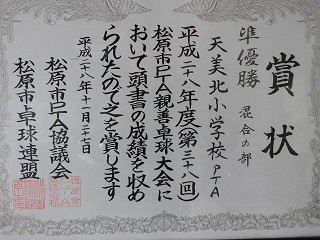 賞状
準優勝 混合の部
天美北小学校PTA
平成二十八年度(第三十八回)
松原市PTA親善卓球大会に
おいて頭書の成績を収め
られたので之を賞します
平成二十八年十一月二十七日
松原市PTA協議会
松原市卓球連盟